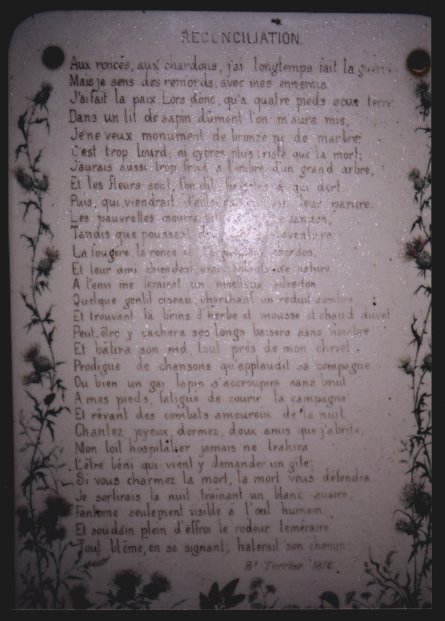 RECONCILIATION.
Aux ronces, aux chardons, j'ai longtemps fait la guerre
Mais je sens des remords, avec mes ennemis
J'ai fait la paix. Lors donc, qu'a quatre pieds sous terre
Dans un lit de sapin dûment l'on m'aura mis,
Je ne veux monument de bronze ni de marbre
C'est trop lourd; ni cyprès plus triste que la mort;
J'aurais aussi trop froid à l'ombre d'un grand arbre,
Et les fleurs sont, l'on dit, à qui dort
Puis, qui viendrait leur parure
Les pauvrettes
Tandis que
La fougère la ronce et
Et leur ami chiendent, vrais de nature
A l'envi me feraient un moelleux edredon
Quelque gentil oiseau, cherchant un réduit sombre
Et trouvant là brins d'herbe et mousse et chaud duvet
Peut être y cachera ses longs baisers sans nombre
Et bâtira son nid tout près de mon chevet
Prodigue de chansons qu'applaudit sa compagne
Ou bien un gai lapin s'accroupira sans bruit
A mes pieds, fatigué de courir la campagne
Et rêvant des combats amoureux de la nuit
Chantez joyeux, dormez, doux amis que j'abrite
Mon toit hospitalier jamais ne trahira
L'être béni qui vient y demander un gîte;
Si vous charmez la mort, la mort vous défendra
Je sortirais la nuit traînant un blanc suaire
Fantôme seulement visible à l'œil humain
Et soudain plein d'effroi le rodeur téméraire
Tout blême, en se signant, hâterait son chemin